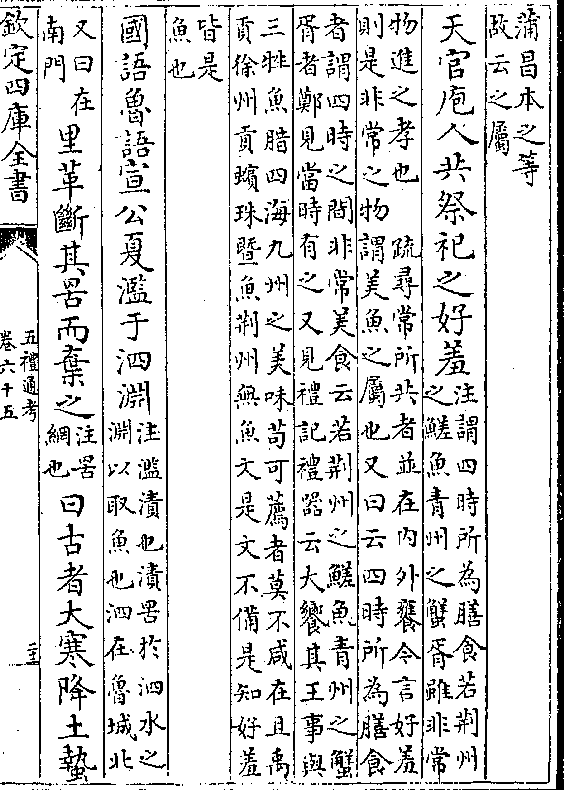 蒲昌本之等
故云之屬
天官庖人共祭祀之好羞
注謂四時所為膳食若荆州
之鱃魚青州之蟹胥雖非常
物進之孝也　疏尋常所共者並在内外饔今言好羞
則是非常之物謂美魚之屬也又曰云四時所為膳食
者謂四時之間非常美食云若荆州之鱃魚青州之蟹
胥者鄭見當時有之又見禮記禮器云大饗其王事與
三牲魚腊四海九州之美味苟可薦者莫不咸在且禹
貢徐州貢蠙珠暨魚荆州無魚文是文不備是知好羞
皆是
魚也
國語魯語宣公夏濫于泗淵
注濫漬也漬罟於泗水之
淵以取魚也泗在魯城北
又曰在
南門
里革斷其罟而棄之
注罟
網也
曰古者大寒降土蟄
欽定四庫全書
五禮通考
卷六十五